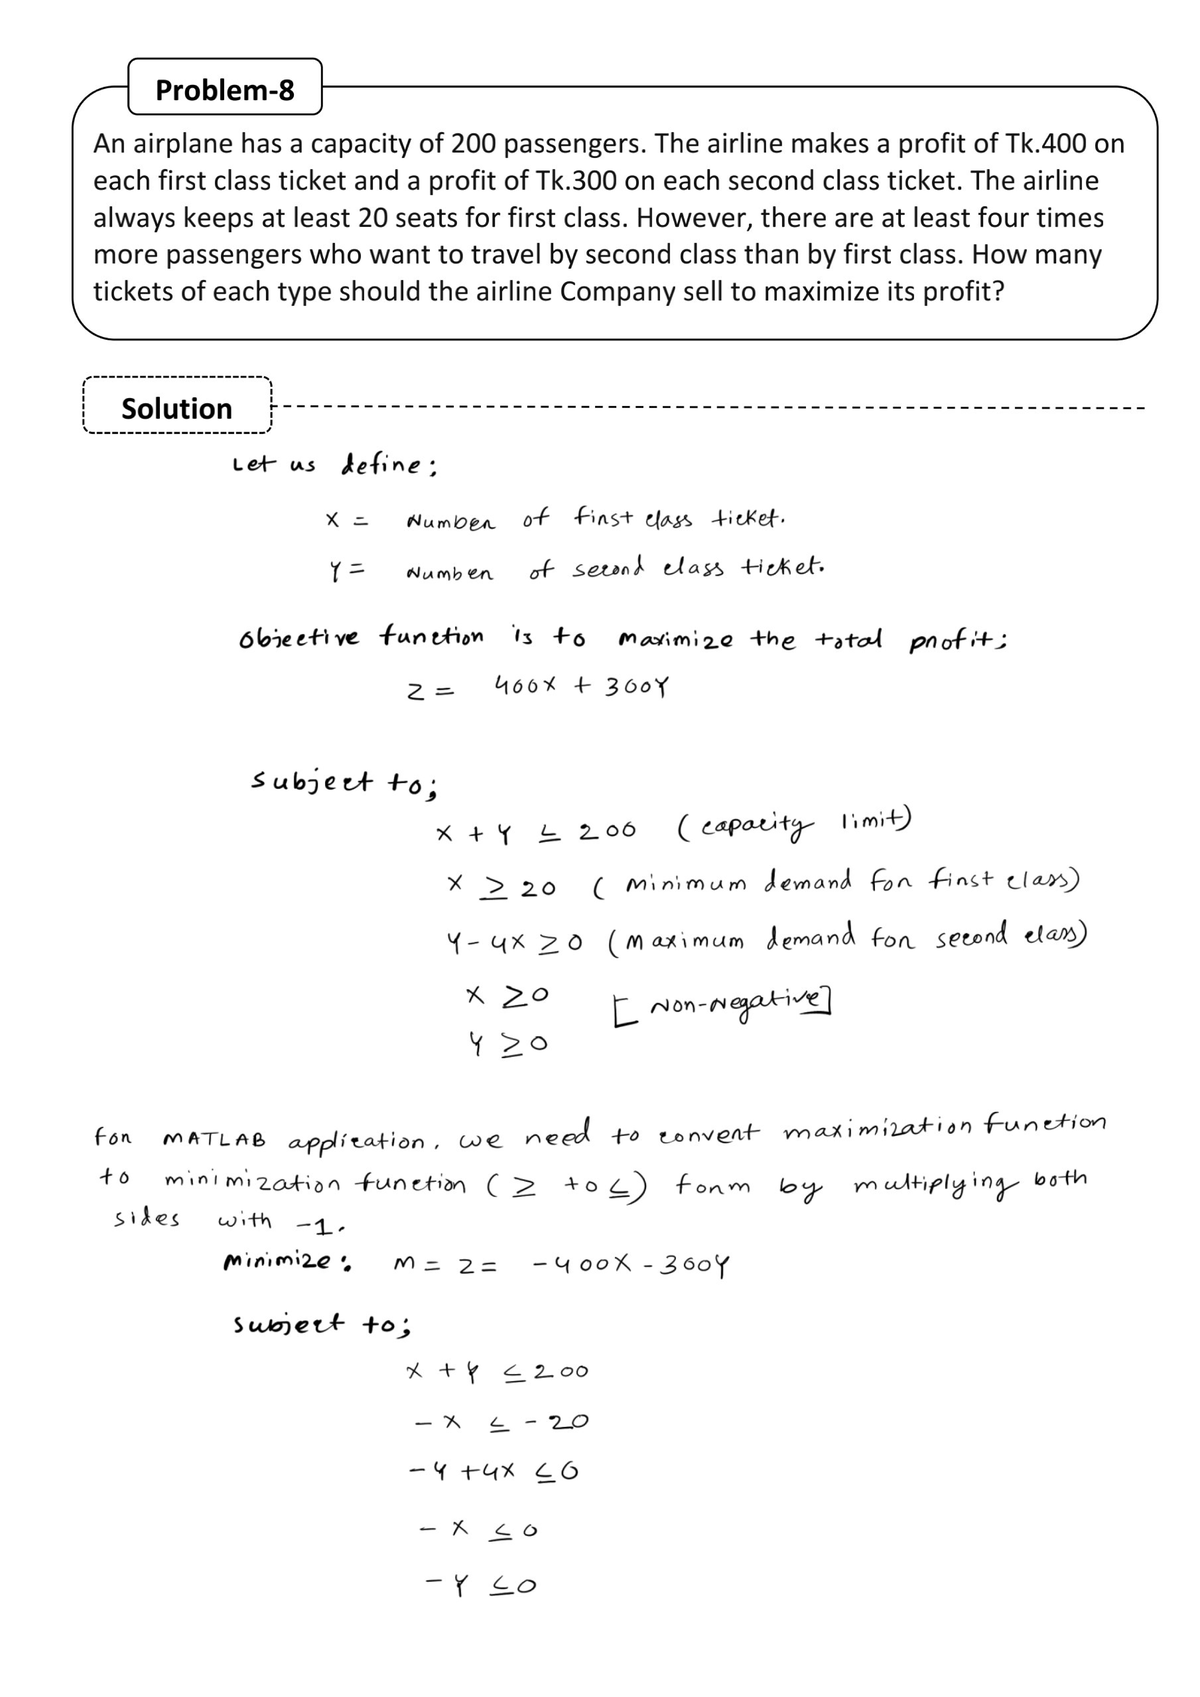 Problem-8
An airplane has a capacity of 200 passengers. The airline makes a profit of Tk.400 on
each first class ticket and a profit of Tk.300 on each second class ticket. The airline
always keeps at least 20 seats for first class. However, there are at least four times
more passengers who want to travel by second class than by first class. How many
tickets of each type should the airline Company sell to maximize its profit?
Solution
Let us define;
X = Number of first class ticket.
Y = Number of second class ticket.
Objective function is to maximize the total profit;
Z = 400X + 300Y
Subject to;
X + Y ≤ 200 (capacity limit)
X ≥ 20 (Minimum demand for first class)
Y - 4X ≥ 0 (Maximum demand for second class)
X ≥ 0
[Non-Negative]
Y ≥ 0
for MATLAB application, we need to convert maximization function
to minimization function (≥ to ≤) form by multiplying both
sides with -1.
Minimize: M = Z = -400X - 300Y
Subject to;
X + Y ≤ 200
-X ≤ -20
-Y + 4X ≤ 0
-X ≤ 0
-Y ≤ 0